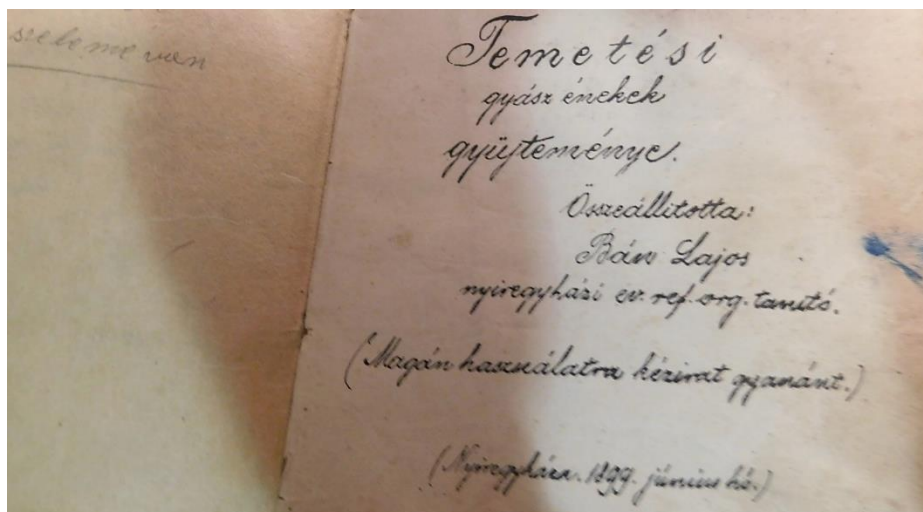 Temetési
gyász énekek
gyűjteménye.
Összeállította:
Bán Lajos
nyiregyházi ev. ref. org. tanító.
(Magán használatra kézirat gyanánt.)
(Nyiregyháza. 1899. június hó.)